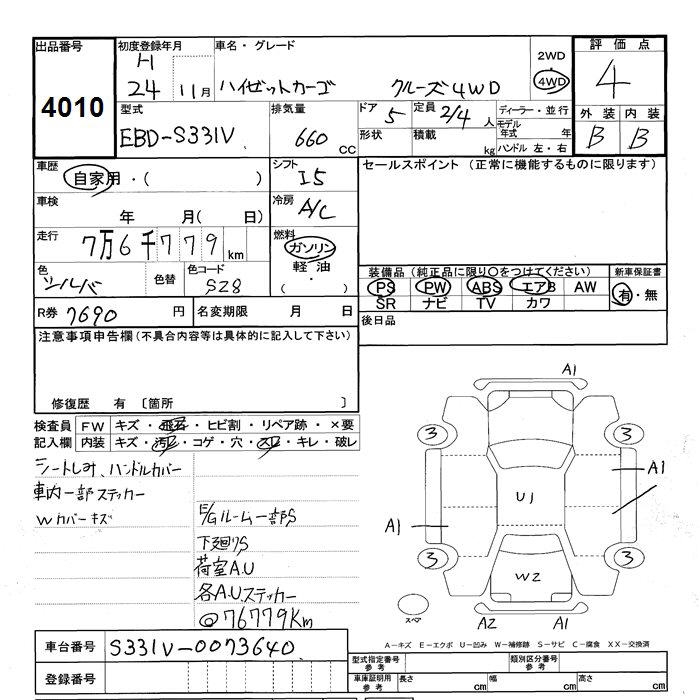 出品番号 初度登録年月 車名・グレード 2WD 評価点
4010 H 24 11月 ハイゼットカーゴ クルーズ4WD 4WD 4
型式 排気量 ドア 5 定員 2/4 人 ディーラー・並行 外装 内装
EBD-S331V 660 CC 形状 積載 kg モデル年式 年 B B
ハンドル 左・右
車歴 自家用・( ) シフト I5 セールスポイント (正常に機能するものに限ります)
車検 年 月( 日) 冷房 A/C
走行 7万6千779km 燃料 ガソリン
軽油
( ・ )
色 シルバ 色替 色コード S28
装備品 (純正品に限り○をつけてください) 新車保証書
PS PW ABS エアB AW 有・無
SR ナビ TV カワ
R券 7690 円 名変期限 月 日 後日品
注意事項申告欄 (不具合内容等は具体的に記入して下さい)
修復歴 有 〔箇所 〕
検査員 FW キズ・飛石・ヒビ割・リペア跡・×要
記入欄 内装 キズ・汚れ・コゲ・穴・スレ・キレ・破レ
シートしみ、ハンドルカバー
車内一部ステッカー
Wカバーキズ
E/Gルーム一部S
下廻りS
荷室A.U
各A.U.ステッカー
@76779Km
A1
3 3
A1
U1
A1
3 3
W2
スペア A2 A1
A-キズ E-エクボ U-凹み W-補修跡 S-サビ C-腐食 XX-交換済
車台番号 S331V-0073640
登録番号
型式指定番号 参考 類別区分番号 参考
車庫証明用 参考 長さ cm 幅 cm 高さ cm